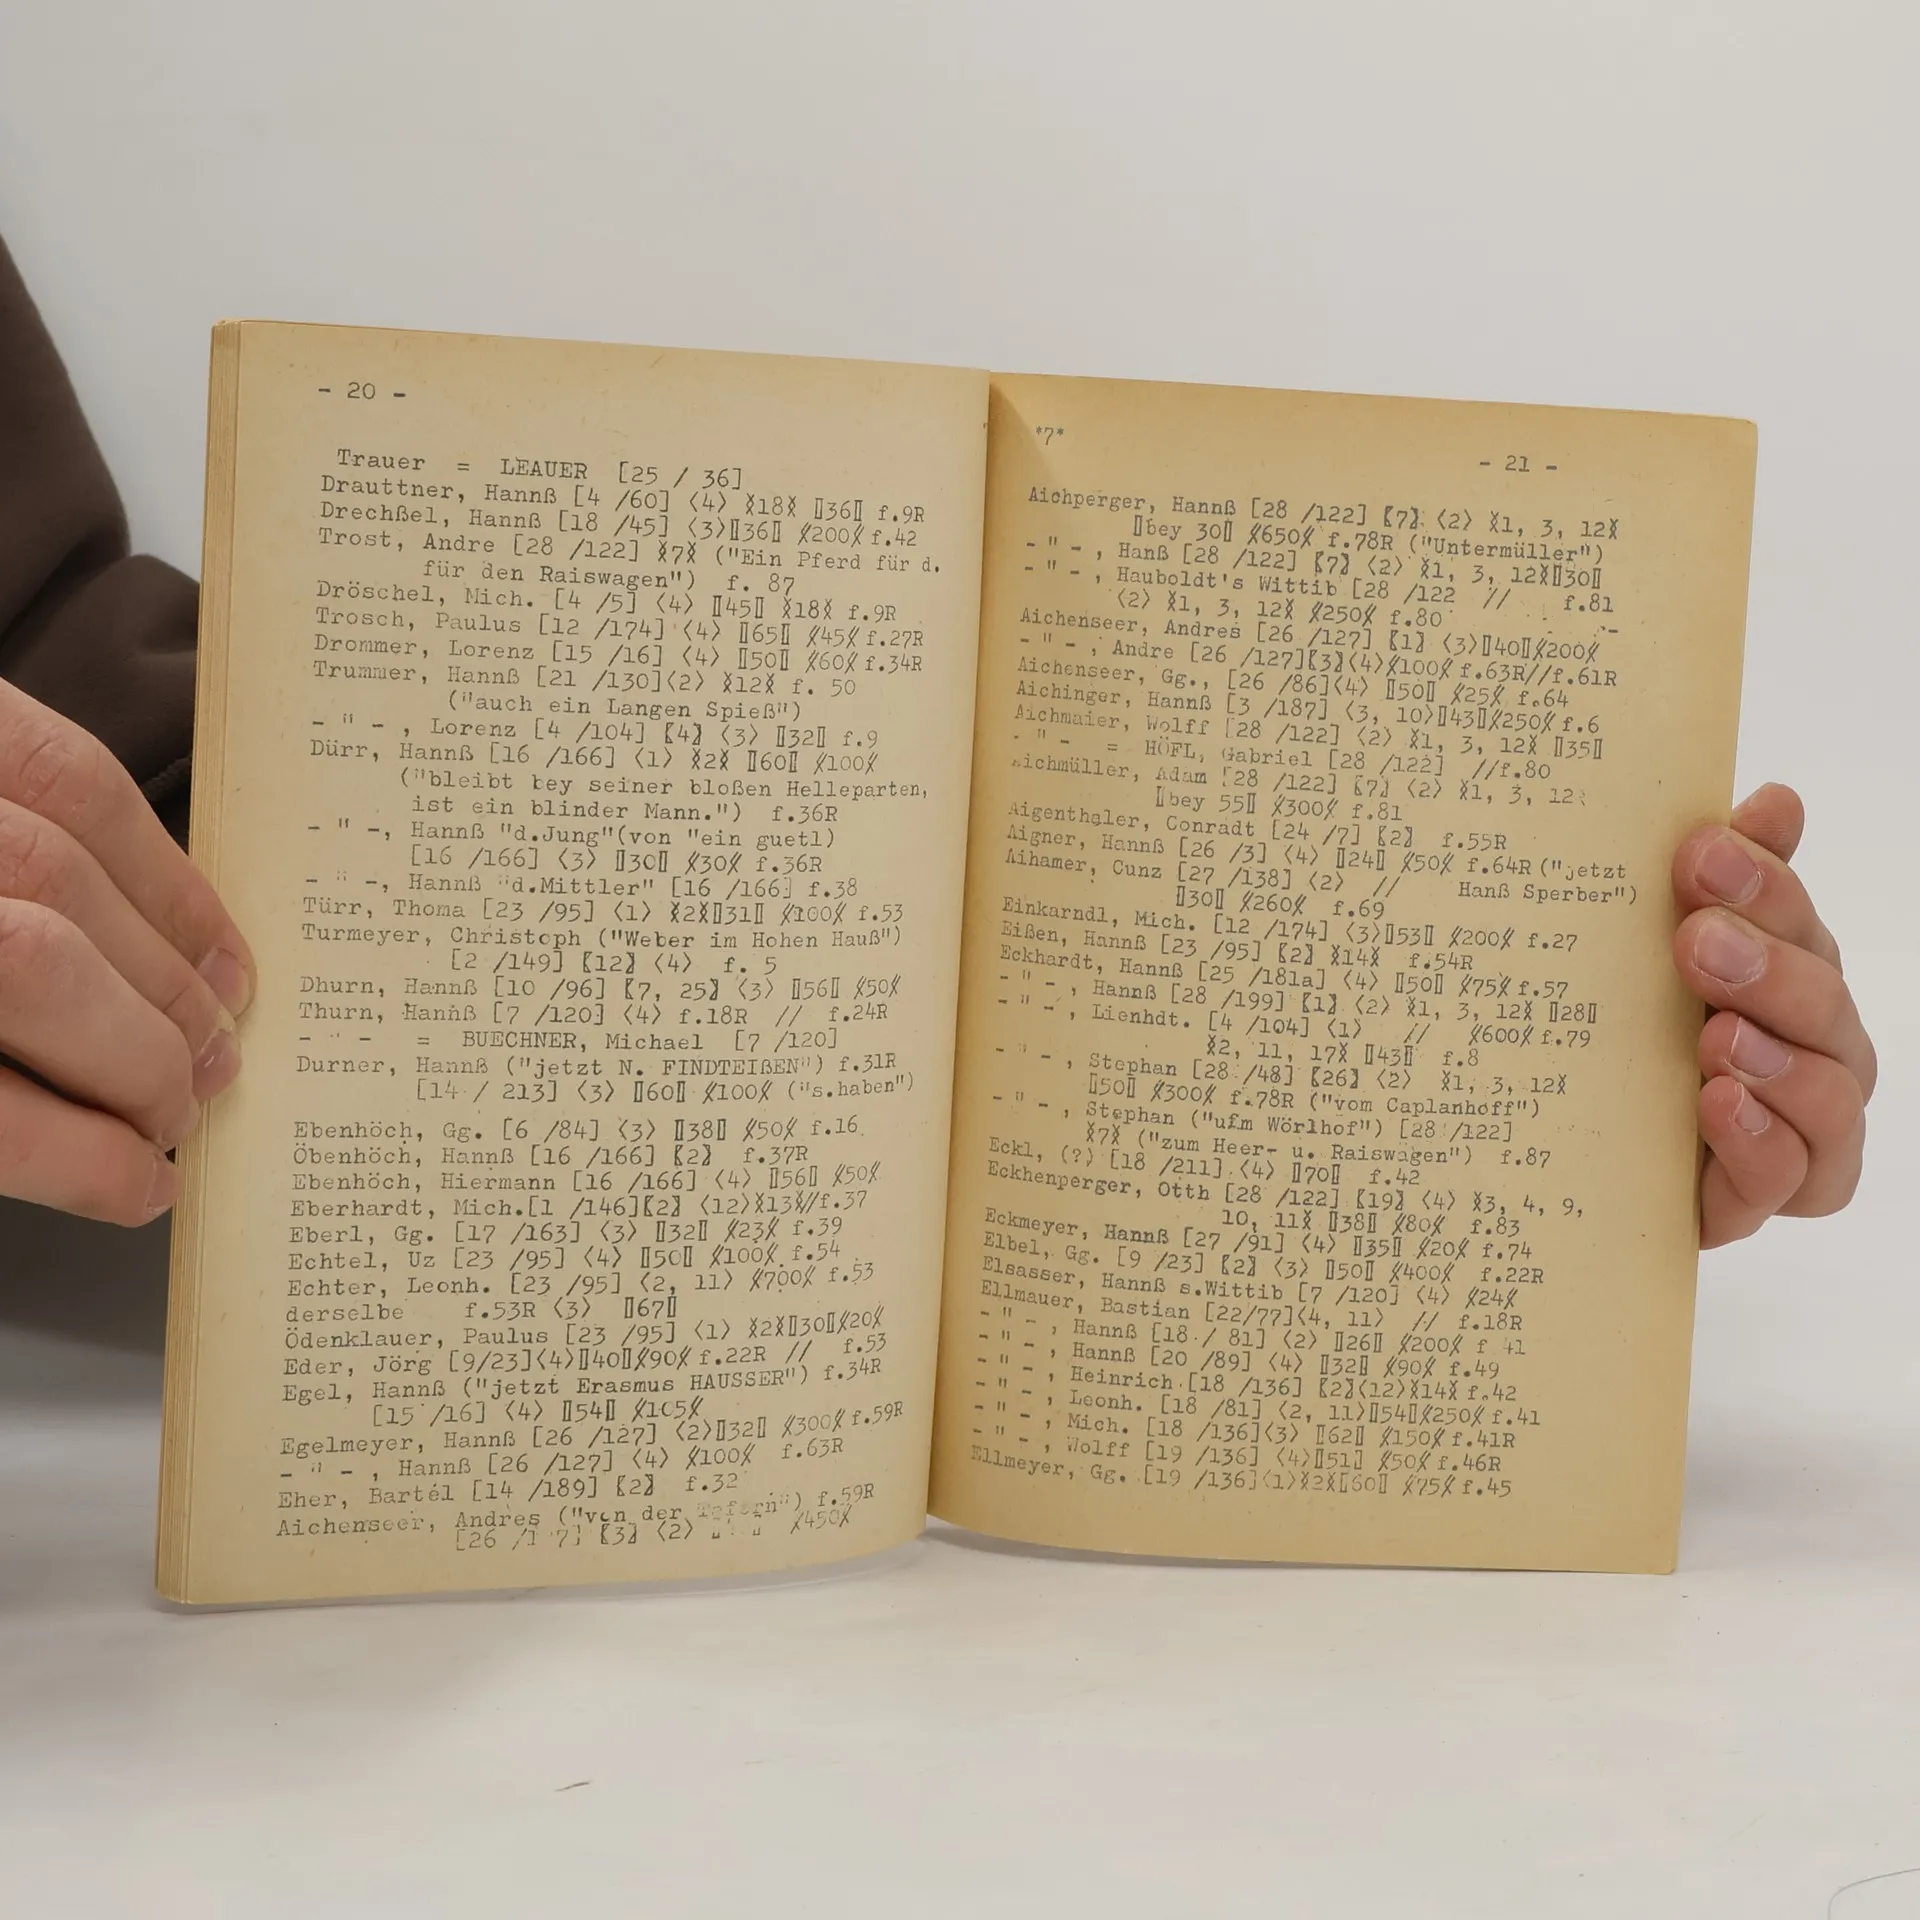 - 20 -
Trauer = LEAUER [25 / 36]
Drauttner, Hannß [4 /60] <4> ༐18༐ ⟦36⟧ f.9R
Drechßel, Hannß [18 /45] <3>⟦36⟧ ⁒200⁒ f.42
Trost, Andre [28 /122] ༐7༐ ("Ein Pferd für d.
für den Raiswagen") f. 87
Dröschel, Mich. [4 /5] <4> ⟦45⟧ ༐18༐ f.9R
Trosch, Paulus [12 /174] <4> ⟦65⟧ ⁒45⁒ f.27R
Drommer, Lorenz [15 /16] <4> ⟦50⟧ ⁒60⁒ f.34R
Trummer, Hannß [21 /130]<2> ༐12༐ f. 50
("auch ein Langen Spieß")
- " - , Lorenz [4 /104] 〖4〗 <3> ⟦32⟧ f.9
Dürr, Hannß [16 /166] <1> ༐2༐ ⟦60⟧ ⁒100⁒
("bleibt bey seiner bloßen Helleparten,
ist ein blinder Mann.") f.36R
- " -, Hannß "d.Jung"(von "ein guetl)
[16 /166] <3> ⟦30⟧ ⁒30⁒ f.36R
- " -, Hannß "d.Mittler" [16 /166] f.38
Türr, Thoma [23 /95] <1> ༐2༐⟦31⟧ ⁒100⁒ f.53
Turmeyer, Christoph ("Weber im Hohen Hauß")
[2 /149] 〖12〗 <4> f. 5
Dhurn, Hannß [10 /96] 〖7, 25〗 <3> ⟦56⟧ ⁒50⁒
Thurn, Hannß [7 /120] <4> f.18R // f.24R
- " - = BUECHNER, Michael [7 /120]
Durner, Hannß ("jetzt N. FINDTEIßEN") f.31R
[14 / 213] <3> ⟦60⟧ ⁒100⁒ ("s.haben")
Ebenhöch, Gg. [6 /84] <3> ⟦38⟧ ⁒50⁒ f.16
Öbenhöch, Hannß [16 /166] 〖2〗 f.37R
Ebenhöch, Hiermann [16 /166] <4> ⟦56⟧ ⁒50⁒
Eberhardt, Mich.[1 /146]〖2〗 <12>༐13༐//f.37
Eberl, Gg. [17 /163] <3> ⟦32⟧ ⁒23⁒ f.39
Echtel, Uz [23 /95] <4> ⟦50⟧ ⁒100⁒ f.54
Echter, Leonh. [23 /95] <2, 11> ⁒700⁒ f.53
derselbe f.53R <3> ⟦67⟧
Ödenklauer, Paulus [23 /95] <1> ༐2༐⟦30⟧⁒20⁒
Eder, Jörg [9/23]<4>⟦40⟧⁒90⁒ f.22R // f.53
Egel, Hannß ("jetzt Erasmus HAUSSER") f.34R
[15 /16] <4> ⟦54⟧ ⁒105⁒
Egelmeyer, Hannß [26 /127] <2>⟦32⟧ ⁒300⁒ f.59R
- " - , Hannß [26 /127] <4> ⁒100⁒ f.63R
Eher, Bartel [14 /189] 〖2〗 f.32
Aichenseer, Andres ("von der Tafern") f.59R
[26 / 7] 〖3〗 <2> ⁒450⁒
*7*
- 21 -
Aichperger, Hannß [28 /122] 〖7〗 <2> ༐1, 3, 12༐
⟦bey 30⟧ ⁒650⁒ f.78R ("Untermüller")
- " - , Hanß [28 /122] 〖7〗 <2> ༐1, 3, 12༐⟦30⟧
- " - , Hauboldt's Wittib [28 /122 // f.81
<2> ༐1, 3, 12༐ ⁒250⁒ f.80
Aichenseer, Andres [26 /127] 〖1〗 <3>⟦40⟧⁒200⁒
- " - , Andre [26 /127]〖3〗<4>⁒100⁒ f.63R//f.61R
Aichenseer, Gg., [26 /86]<4> ⟦50⟧ ⁒25⁒ f.64
Aichinger, Hannß [3 /187] <3, 10>⟦43⟧⁒250⁒ f.6
Aichmaier, Wolff [28 /122] <2> ༐1, 3, 12༐ ⟦35⟧
- " - = HÖFL, Gabriel [28 /122] //f.80
Aichmüller, Adam [28 /122] 〖7〗 <2> ༐1, 3, 12
⟦bey 55⟧ ⁒300⁒ f.81
Aigenthaler, Conradt [24 /7] 〖2〗 f.55R
Aigner, Hannß [26 /3] <4> ⟦24⟧ ⁒50⁒ f.64R ("jetzt
Aihamer, Cunz [27 /138] <2> // Hanß Sperber")
⟦30⟧ ⁒260⁒ f.69
Einkarndl, Mich. [12 /174] <3>⟦53⟧ ⁒200⁒ f.27
Eißen, Hannß [23 /95] 〖2〗 ༐14༐ f.54R
Eckhardt, Hannß [25 /181a] <4> ⟦50⟧ ⁒75⁒ f.57
- " - , Hannß [28 /199] 〖1〗 <2> ༐1, 3, 12༐ ⟦28⟧
- " - , Lienhdt. [4 /104] <1> // ⁒600⁒ f.79
༐2, 11, 17༐ ⟦43⟧ f.8
- " - , Stephan [28 /48] 〖26〗 <2> ༐1, 3, 12༐
⟦50⟧ ⁒300⁒ f.78R ("vom Caplanhoff")
- " - , Stephan ("ufm Wörlhof") [28 /122]
༐7༐ ("zum Heer- u. Raiswagen") f.87
Eckl, (?) [18 /211] <4> ⟦70⟧ f.42
Eckhenperger, Otth [28 /122] 〖19〗 <4> ༐3, 4, 9,
10, 11༐ ⟦38⟧ ⁒80⁒ f.83
Eckmeyer, Hannß [27 /91] <4> ⟦35⟧ ⁒20⁒ f.74
Elbel, Gg. [9 /23] 〖2〗 <3> ⟦50⟧ ⁒400⁒ f.22R
Elsasser, Hannß s.Wittib [7 /120] <4> ⁒24⁒
Ellmauer, Bastian [22/77]<4, 11> // f.18R
- " - , Hannß [18 / 81] <2> ⟦26⟧ ⁒200⁒ f 41
- " - , Hannß [20 /89] <4> ⟦32⟧ ⁒90⁒ f.49
- " - , Heinrich [18 /136] 〖2〗<12>༐14༐ f.42
- " - , Leonh. [18 /81] <2, 11>⟦54⟧⁒250⁒ f.41
- " - , Mich. [18 /136]<3> ⟦62⟧ ⁒150⁒ f.41R
- " - , Wolff [19 /136] <4>⟦51⟧ ⁒50⁒ f.46R
Ellmeyer, Gg. [19 /136]<1>༐2༐⟦60⟧ ⁒75⁒ f.45